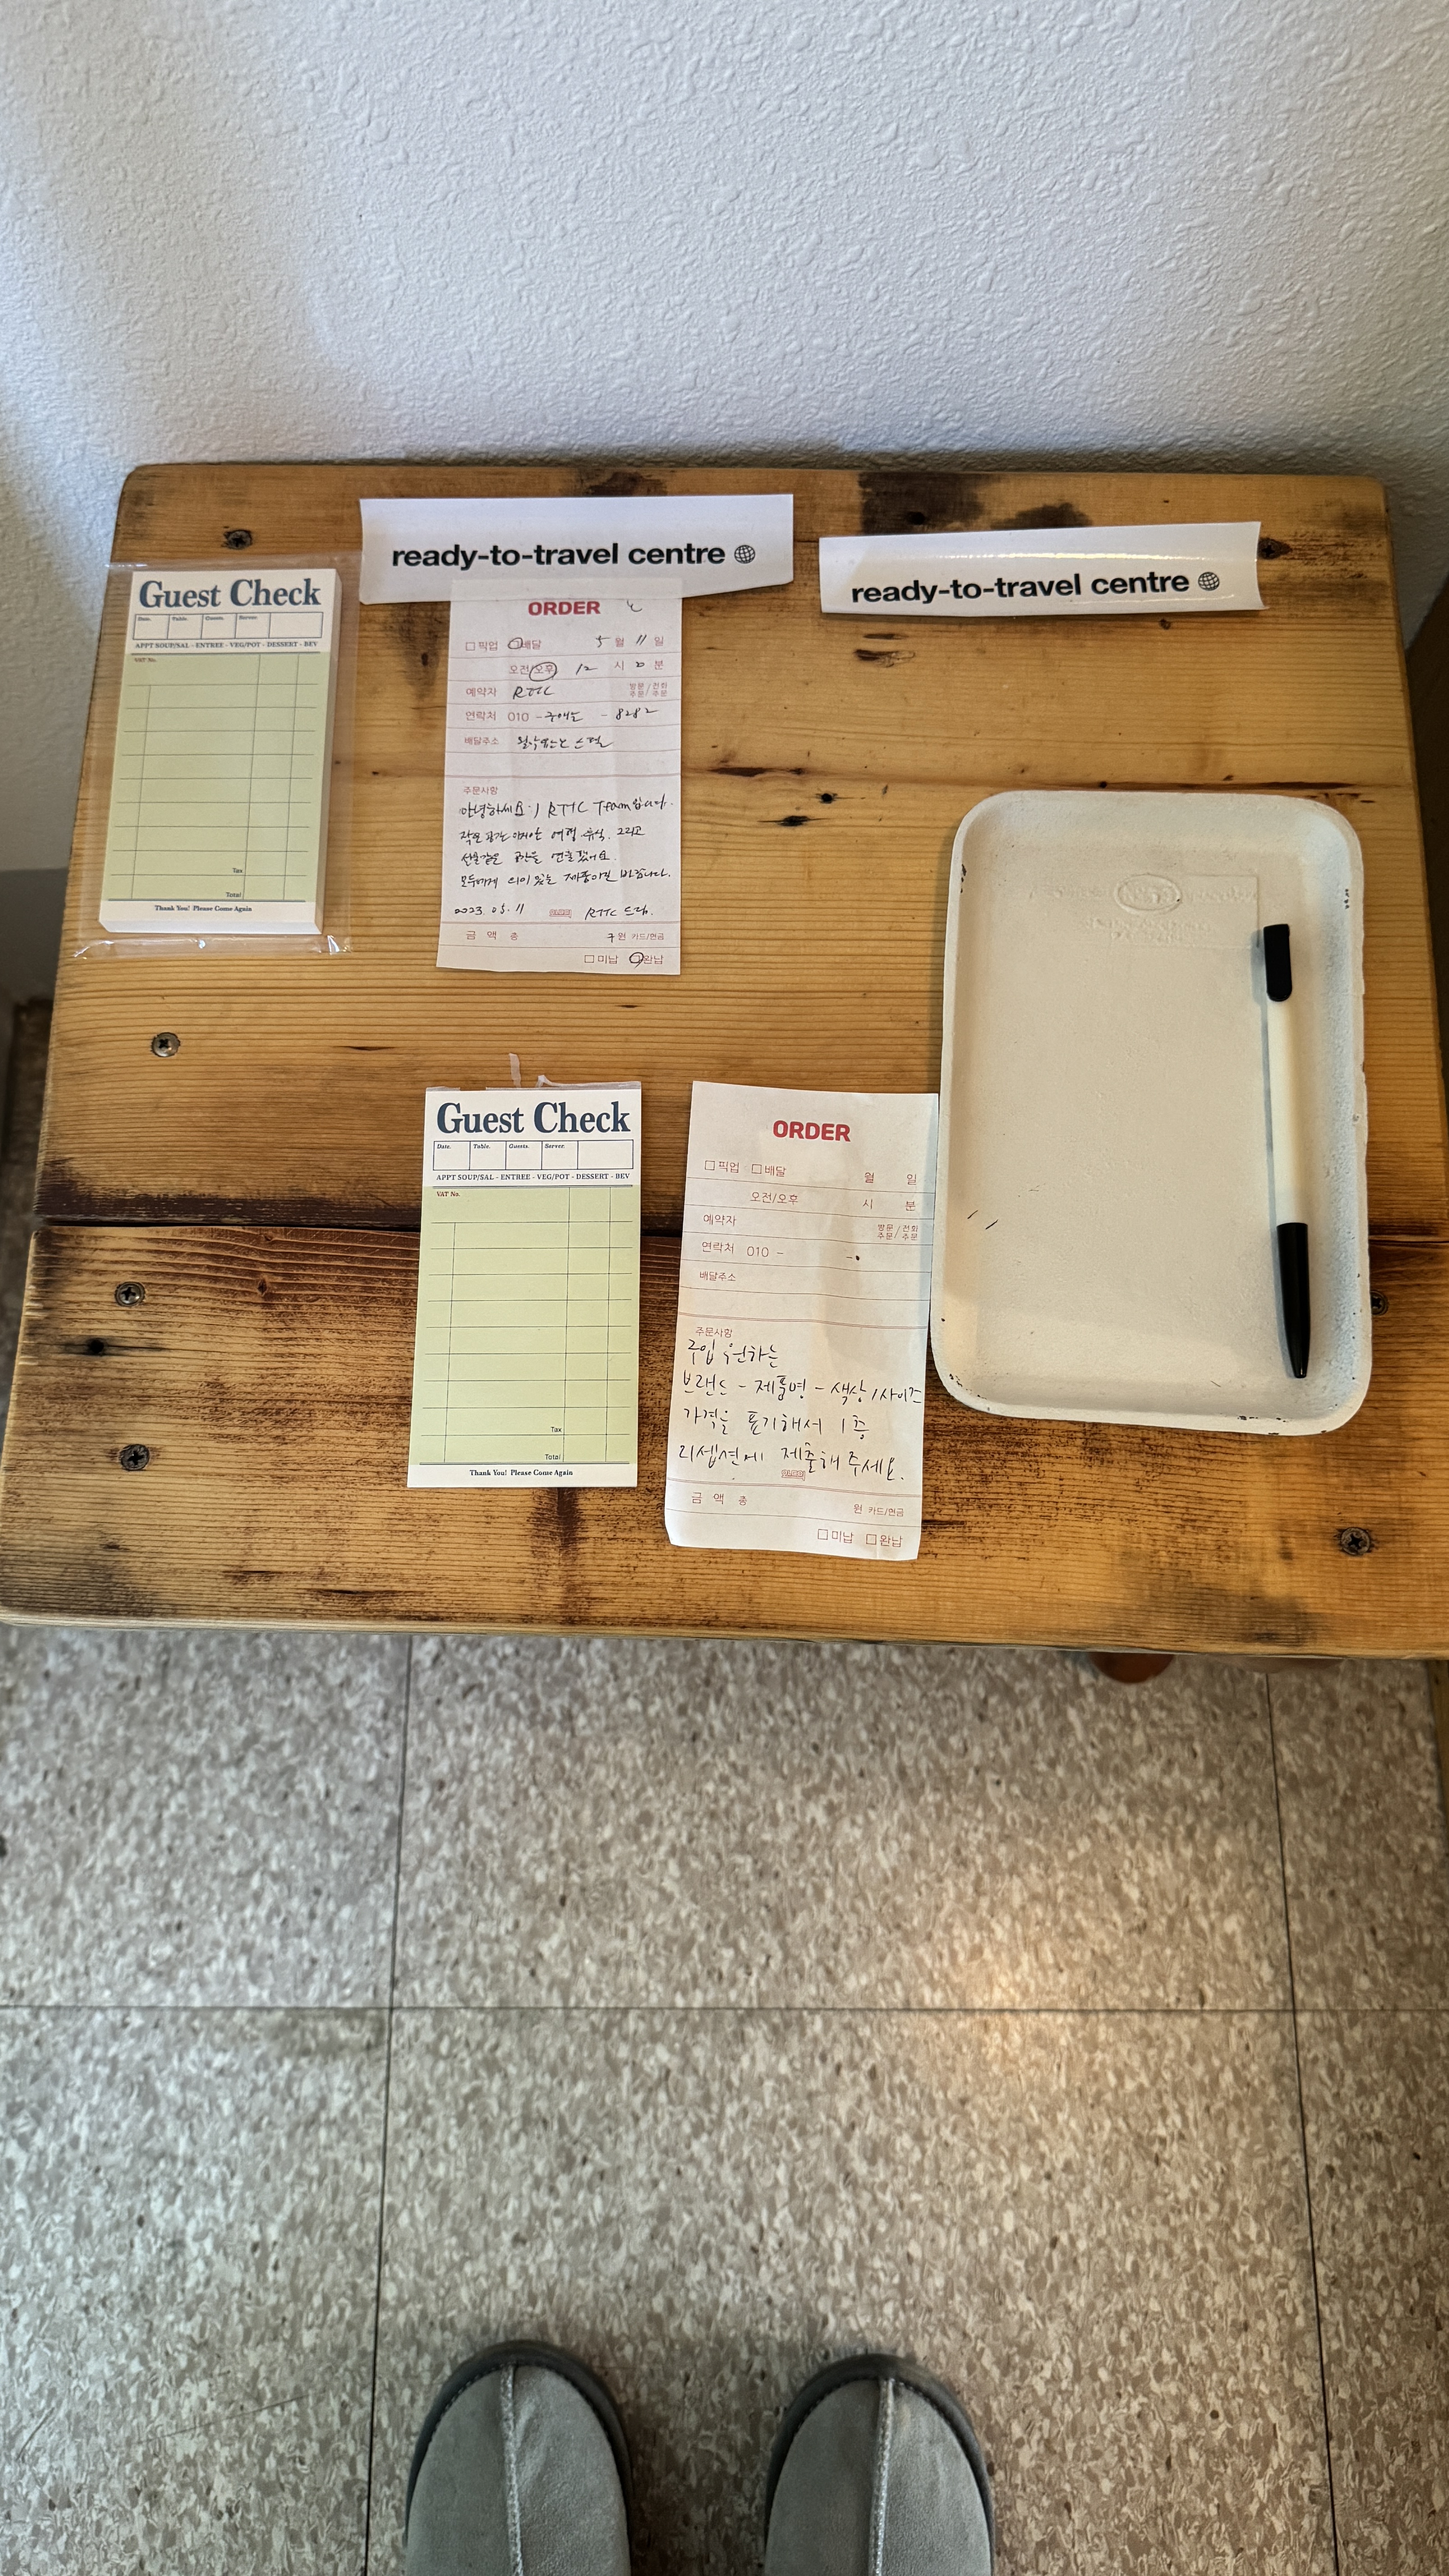 ready-to-travel centre
ready-to-travel centre
Guest Check
Date. Table. Guests. Server.
APPT SOUP/SAL - ENTREE - VEG/POT - DESSERT - BEV
VAT No.
Tax
Total
Thank You! Please Come Again
ORDER
픽업 배달 5월 11일
오전/오후 12시 0분
예약자 RTTC 방문주문/전화주문
연락처 010 - - 8282
배달주소
주문사항
안녕하세요:) RTTC Team입니다.
작은 여행, 휴식, 그리고
선물같은 공간을 연출했어요.
모두에게 의미 있는 제품이길 바랍니다.
2023. 05. 11 RTTC 드림.
금 액 총 구원 카드/현금
미납 완납
Guest Check
Date. Table. Guests. Server.
APPT SOUP/SAL - ENTREE - VEG/POT - DESSERT - BEV
VAT No.
Tax
Total
Thank You! Please Come Again
ORDER
픽업 배달 월 일
오전/오후 시 분
예약자 방문주문/전화주문
연락처 010 - -
배달주소
주문사항
구입 원하는
브랜드 - 제품명 - 색상/사이즈
가격을 표기해서 1층
리셉션에 제출해 주세요.
금 액 총 원 카드/현금
미납 완납